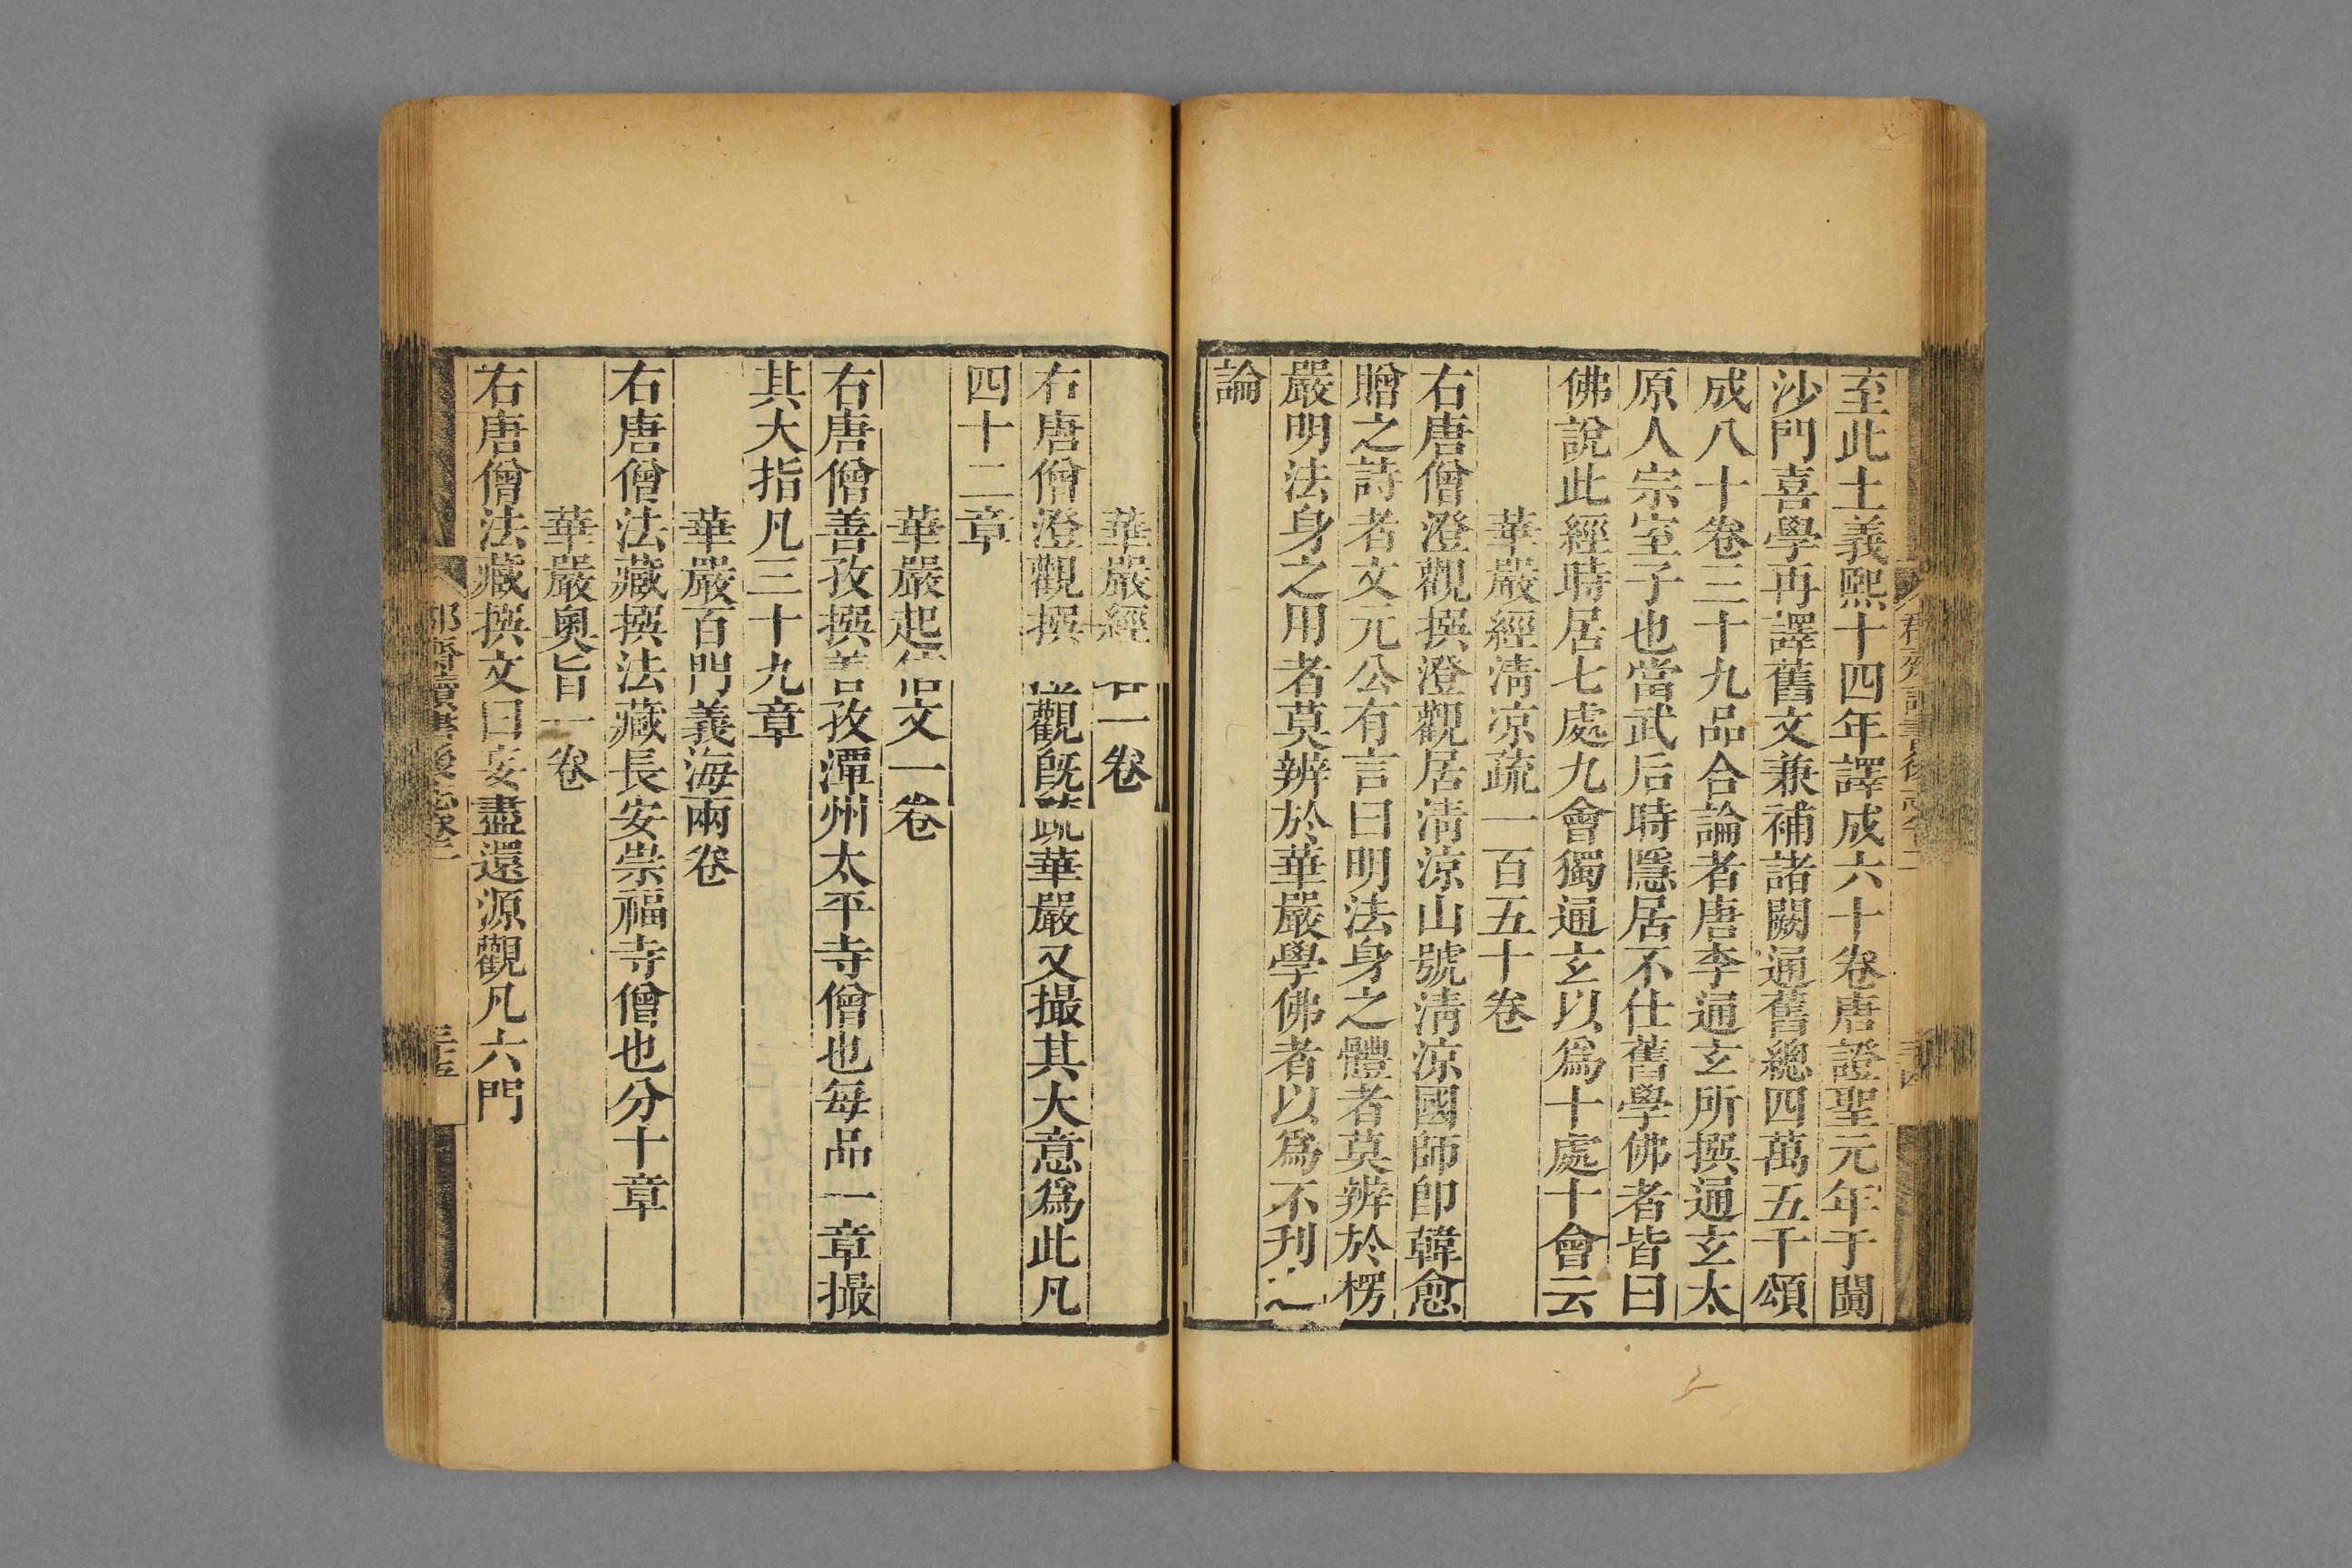 至此土義熙十四年譯成六十卷唐證聖元年于闐
沙門喜學再譯舊文兼補諸闕通舊總四萬五千頌
成八十卷三十九品合論者唐李通玄所撰通玄太
原人宗室子也當武后時隱居不仕舊學佛者皆曰
佛說此經時居七處九會獨通玄以爲十處十會云
華嚴經淸凉疏一百五十卷
右唐僧澄觀撰澄觀居淸涼山號淸涼國師卽韓愈
贈之詩者文元公有言曰明法身之體者莫辨於楞
嚴明法身之用者莫辨於華嚴學佛者以爲不刊之
論
華嚴經一卷
右唐僧澄觀撰澄觀旣疏華嚴又撮其大意爲此凡
四十二章
華嚴起信文一卷
右唐僧善孜撰善孜潭州太平寺僧也每品一章撮
其大指凡三十九章
華嚴百門義海兩卷
右唐僧法藏撰法藏長安崇福寺僧也分十章
華嚴奥旨一卷
右唐僧法藏撰文曰妄盡還源觀凡六門
郡齋讀書後志卷二
三五